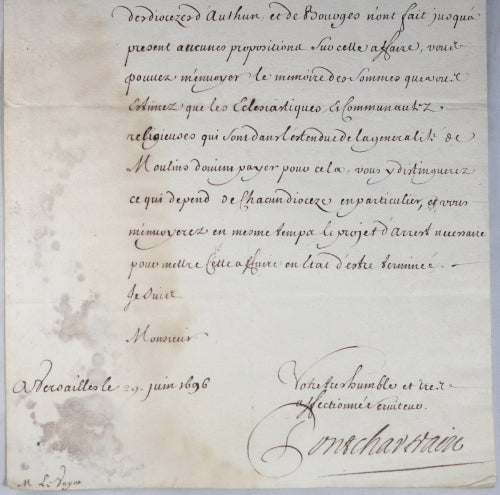 des diocezes d'Authun, et de Bourges n'ont fait jusqu'a
present aucunes propositions sur cette affaire, vous
pouvez m'envoyer le memoire des sommes que vous
Estimez que les Eclesiastiques, & Communautez
religieuses qui sont dans l'estendue de la generalité de
Moulins doivent payer pour cela, vous y distinguerez
ce qui depend de Chacun dioceze en particulier, et vous
m'envoyerez en mesme temps le projet d'Arrest necessaire
pour mettre Cette affaire en Estat d'estre terminée. -
Je suis
Monsieur
A Versailles le 29. juin 1696
Votre tres humble et tres
affectionné serviteur.
Pontchartrain
M. Le Vayer